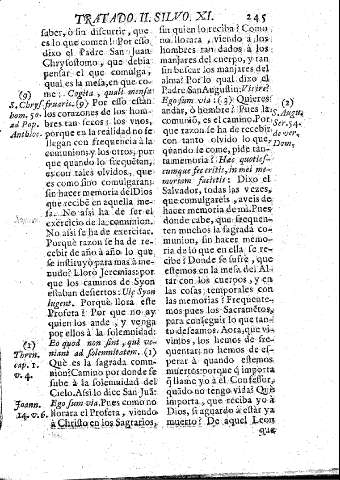 TRATADO. II. SILVO. XI. 245
saber, ò sin discurrir, que
es lo que comen! Por esso
dixo el Padre San Juan
Chrysostomo, que debia
pensar el que comulga,
qual es la mesa, en que come.
(9)
S. Chrys.
hom. 50.
ad Pop.
Antiloc.
me. Cogita, quali mensa
fruaris. (9) Por esso están
los corazones de los hom-
bres tan secos: los vnos,
porque en la realidad no se
llegan con frequencia à la
comunion: y los otros, por
que quando lo frequentan,
es con tales olvidos, que
es como sino comulgaran:
sin hacer memoria del Dios
que recibe en aquella me-
sa. No assi ha de ser el
exercicio de la comunion.
No assi se ha de exercitar.
Porquè razon se ha de re-
cibir de año à año lo que
se instituyò para mas à me-
nudo? Llorò Jeremias: por
que los caminos de Syon
estaban desiertos: Viæ Syon
lugent. Porquè llora este
Profeta? Por que no ay
quien los ande, y venga
por ellos à la solemnidad:
(1)
Thren.
cap. 1.
v. 4.
Eo quod non sint, què ve-
niant ad solemnitatem. (1)
Què es la comunion, sino ca-
mino? Camino por donde se
sube à la solemnidad del
Cielo. Assi lo dice San Juā:
Joann.
14. v. 6.
Ego sum via. Pues como no
llorara el Profeta, viendo
à Christo en los Sagrarios,
sin quien lo reciba? Como
no llorara, viendo à los
hombres tan dados à los
manjares del cuerpo, y tan
sin buscar los manjares del
alma? Por lo qual dixo el
Padre San Augustin: Vis ire?
(2)
S. Augu.
Ser. 54.
de ver.
Dom.
Ego sum via: (2) Quieres
andar, ò hombre? Pues la
comunion, es el camino. Por
que razon se ha de recebir
con tanto olvido lo que,
quando le come, pide tan-
ta memoria? Hæc quoties-
cumque feceritis, in mei me-
moriam facietis: Dixo el
Salvador, todas las veces,
que comulgareis, aveis de
hacer memoria de mi. Pues
donde cabe, que frequen-
ten muchos la sagrada co-
munion, sin hacer memo-
ria de lo que en ella se re-
cibe? Donde se sufre, que
estemos en la mesa del Al-
tar con los cuerpos, y en
las cosas temporales con
las memorias? Frequente-
mos pues los Sacramētos,
para conseguir lo que tan-
to deseamos. Aora, que vi-
vimos, los hemos de fre-
quentar; no hemos de es-
perar à quando estemos
muertos: porque q̄ importa
q̄ llame yo à el Confessor,
quādo no tengo vida? Què
importa, que reciba yo à
Dios, si aguardo à estar ya
muerto? De aquel Leon
que